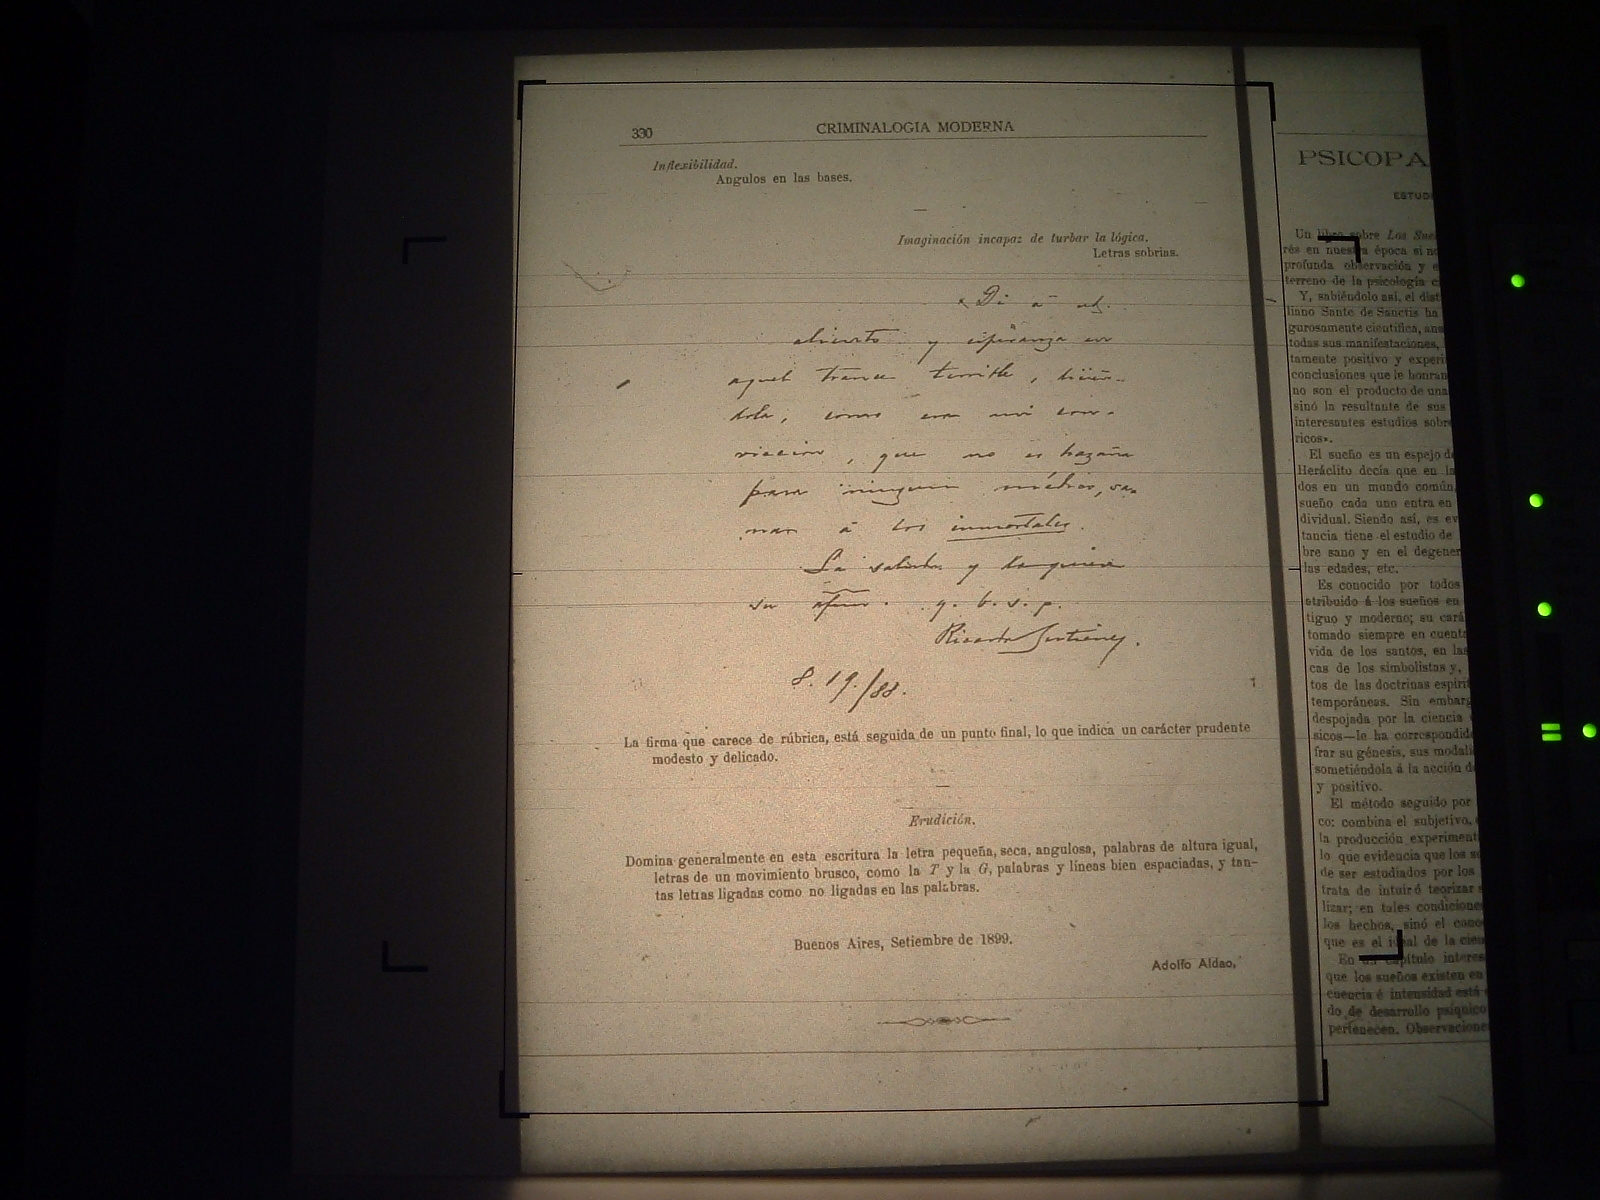 330
CRIMINALOGIA MODERNA
Inflexibilidad.
Angulos en las bases.
Imaginación incapaz de turbar la lógica.
Letras sobrias.
Di á
aliento y esperanza en
aquel trance terrible,
como era mi con-
vicción, que no es hazaña
para ningun médico, sa-
nar á los inmortales.
La saluda y
su afmo. q. b. s. p.
Ricardo Gutierrez.
8. 19/88.
La firma que carece de rúbrica, está seguida de un punto final, lo que indica un carácter prudente
modesto y delicado.
Erudición.
Domina generalmente en esta escritura la letra pequeña, seca, angulosa, palabras de altura igual,
letras de un movimiento brusco, como la T y la G, palabras y líneas bien espaciadas, y tan-
tas letras ligadas como no ligadas en las palabras.
Buenos Aires, Setiembre de 1899.
Adolfo Aldao,
PSICOPA
ESTUD
Un libro sobre Los Sue
rés en nuestra época si no
profunda observación y e
terreno de la psicología c
Y, sabiéndolo así, el dist
liano Sante de Sanctis ha
gurosamente científica, ana
todas sus manifestaciones,
tamente positivo y experi
conclusiones que le honran
no son el producto de una
sinó la resultante de sus
interesantes estudios sobre
ricos».
El sueño es un espejo de
Heráclito decía que en la
dos en un mundo común,
sueño cada uno entra en
dividual. Siendo así, es ev
tancia tiene el estudio de
bre sano y en el degener
las edades, etc.
Es conocido por todos
atribuido á los sueños en
tiguo y moderno; su cará
tomado siempre en cuenta
vida de los santos, en las
cas de los simbolistas y,
tos de las doctrinas espirit
temporáneas. Sin embarg
despojada por la ciencia
sicos—le ha correspondido
frar su génesis, sus modali
sometiéndola á la acción d
y positivo.
El método seguido por
co: combina el subjetivo,
la producción experiment
lo que evidencia que los s
de ser estudiados por los
trata de intuir ó teorizar
lizar; en tales condicione
los hechos, sinó el cono
que es el ideal de la cien
En un capítulo interes
que los sueños existen en
cuencia é intensidad está
do de desarrollo psíquico
pertenecen. Observacione